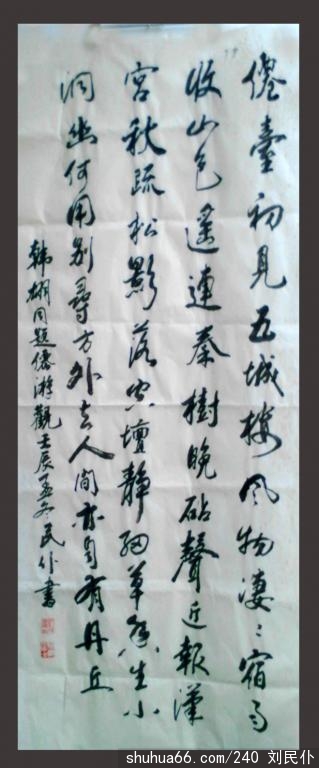 僊臺初見五城樓風物凄〻宿雨
收山色遙連秦樹晚砧聲近報漢
宮秋疏松影落空壇靜細草香生小
洞幽何用別尋方外去人間亦自有丹丘
韓翃同題僊游觀壬辰孟冬民仆書
shuhua66.com/240 刘民仆